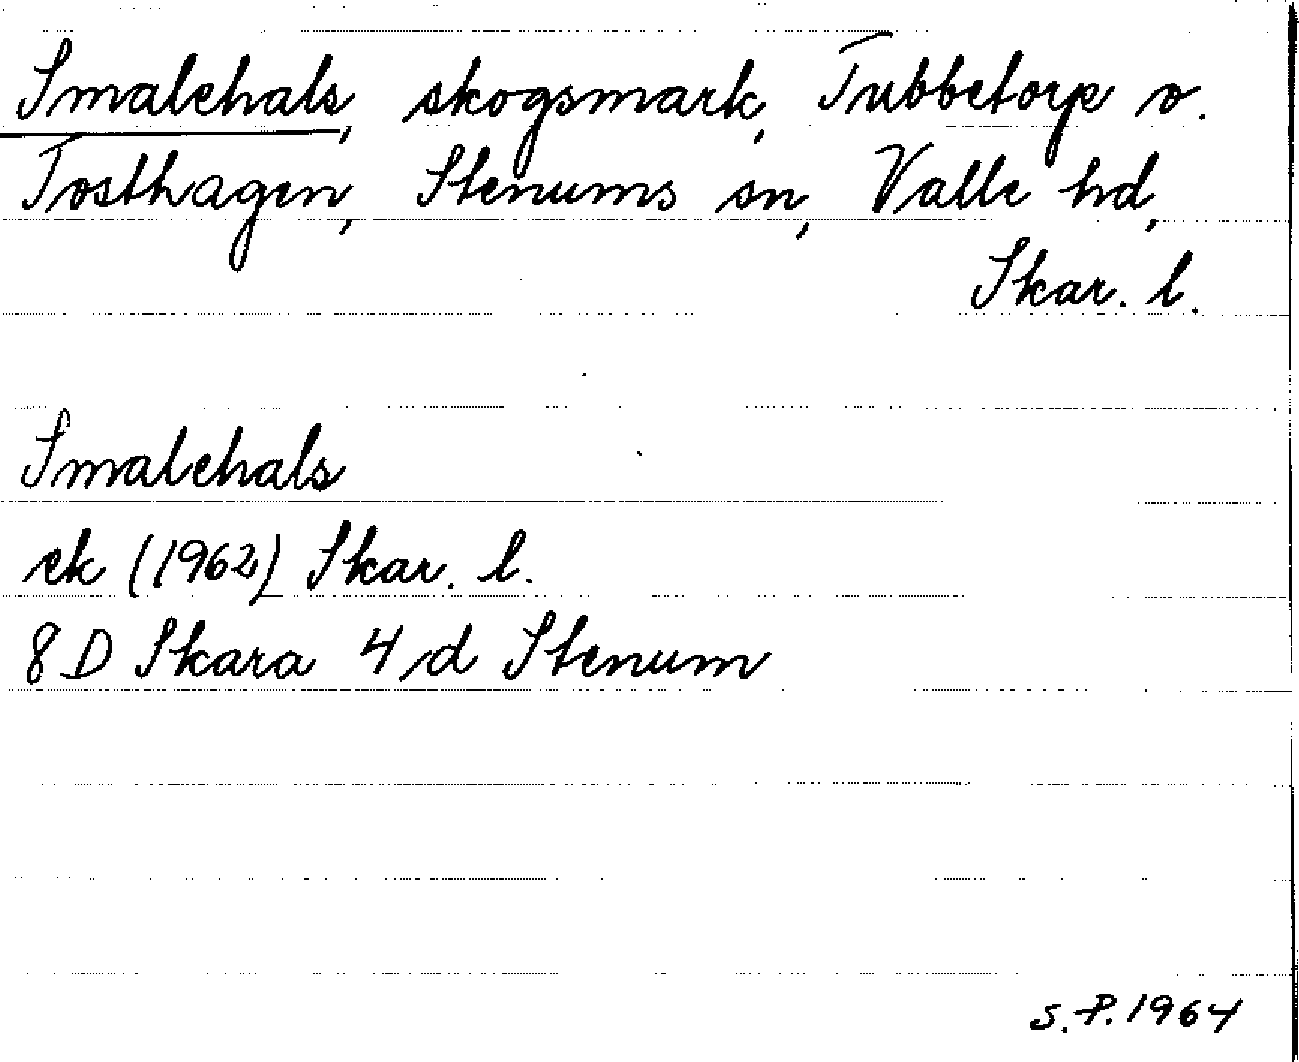 Smalehals, skogsmark, Tubbetorp o.
Tosthagen, Stenums sn, Valle hd,
Skar. l.
Smalehals
ek (1962) Skar. l.
8 D Skara 4 d Stenum
S.P. 1964